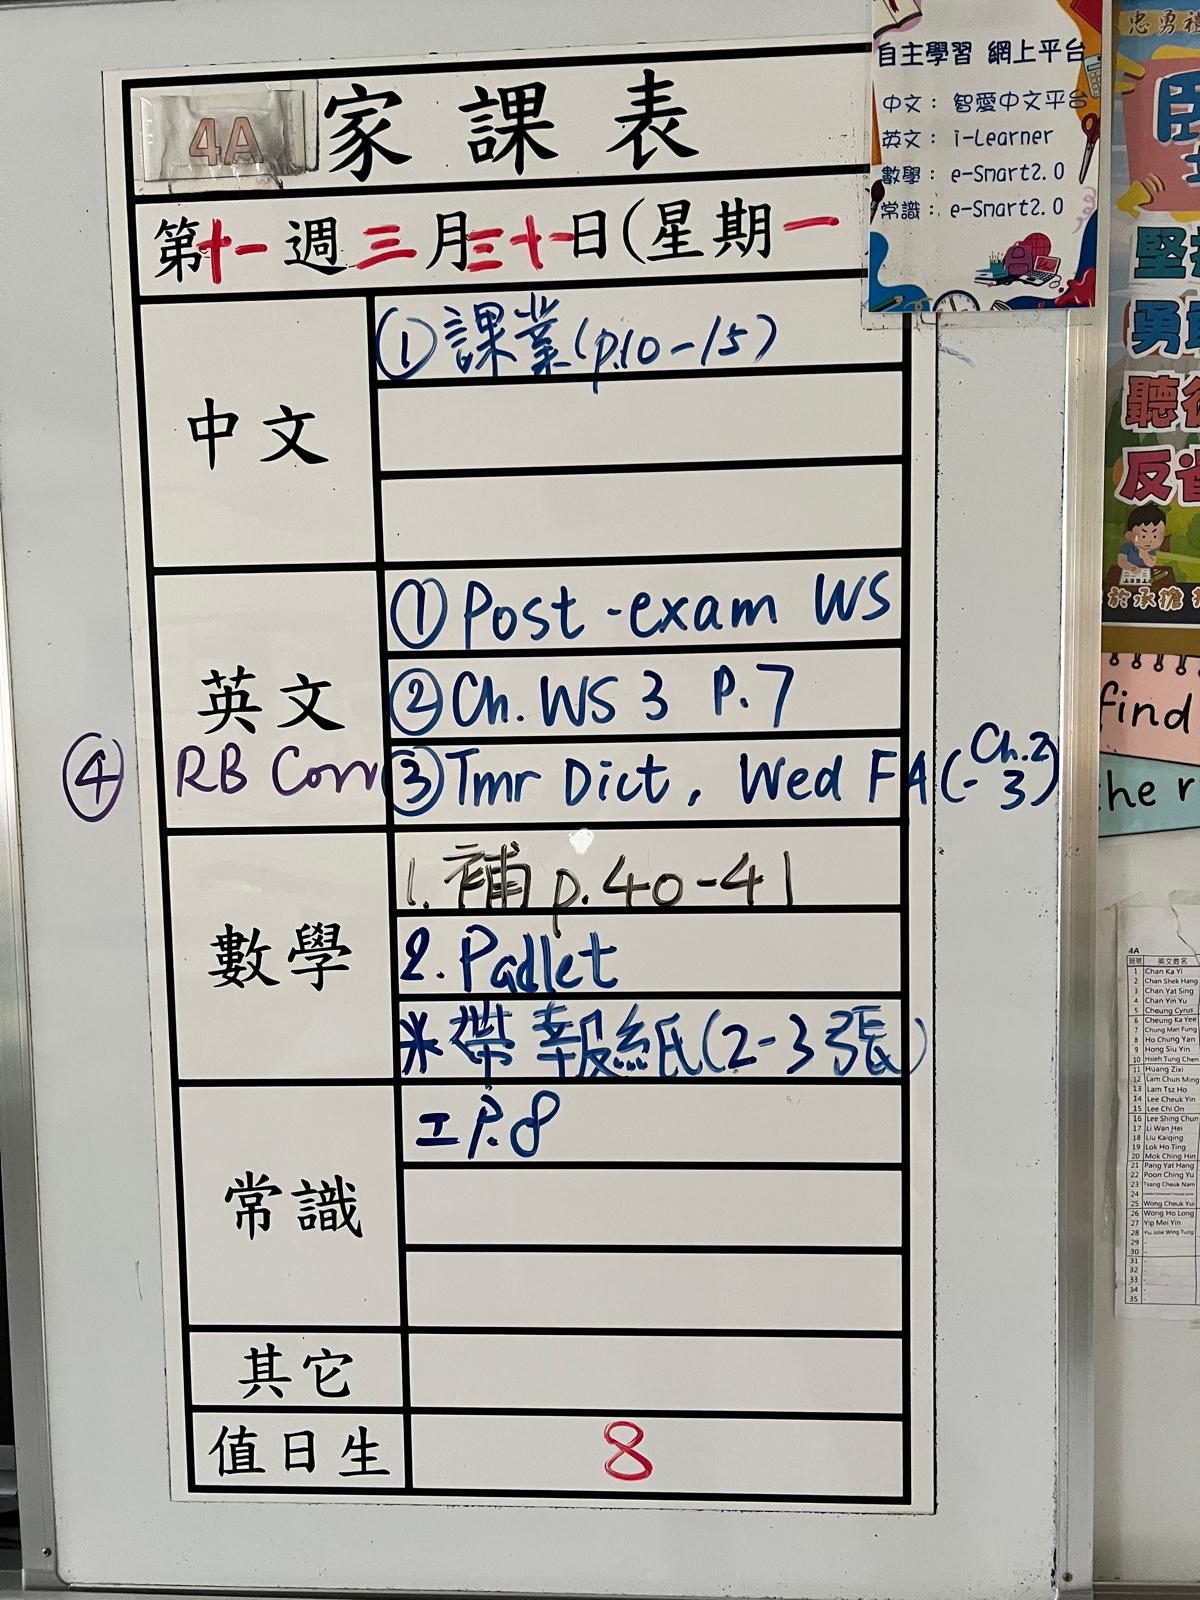 4A 家課表
第十一週三月三十一日(星期一
中文
①課業(p.10-15)
英文
①Post-exam WS
②Ch. WS 3 P.7
③Tmr Dict, Wed FA (Ch.2-3)
④ RB Corr
數學
1. 補 p.40-41
2. Padlet
※帶報紙(2-3張)
常識
工 P.8
其它
值日生
8
自主學習 網上平台
中文： 智愛中文平台
英文： i-Learner
數學： e-Smart2.0
常識： e-Smart2.0
忠勇
堅
勇
聽
反省
於承擔
find
the r
4A
班號 英文姓名
1 Chan Ka Yi
2 Chan Shek Hang
3 Chan Yat Sing
4 Chan Yin Yu
5 Cheung Cyrus
6 Cheung Ka Yee
7 Chung Man Fung
8 Ho Chung Yan
9 Hong Siu Yin
10 Hsieh Tung Chen
11 Huang Zixi
12 Lam Chun Ming
13 Lam Tsz Ho
14 Lee Cheuk Yin
15 Lee Chi On
16 Lee Shing Chun
17 Li Wan Hei
18 Liu Kaiqing
19 Lok Ho Ting
20 Mok Ching Hin
21 Pang Yat Hang
22 Poon Ching Yu
23 Tsang Cheuk Nam
24
25 Wong Cheuk Yui
26 Wong Ho Long
27 Yip Mei Yin
28 Yiu Jolie Wing Tung
29 -
30 -
31 -
32 -
33 -
34 -
35 -